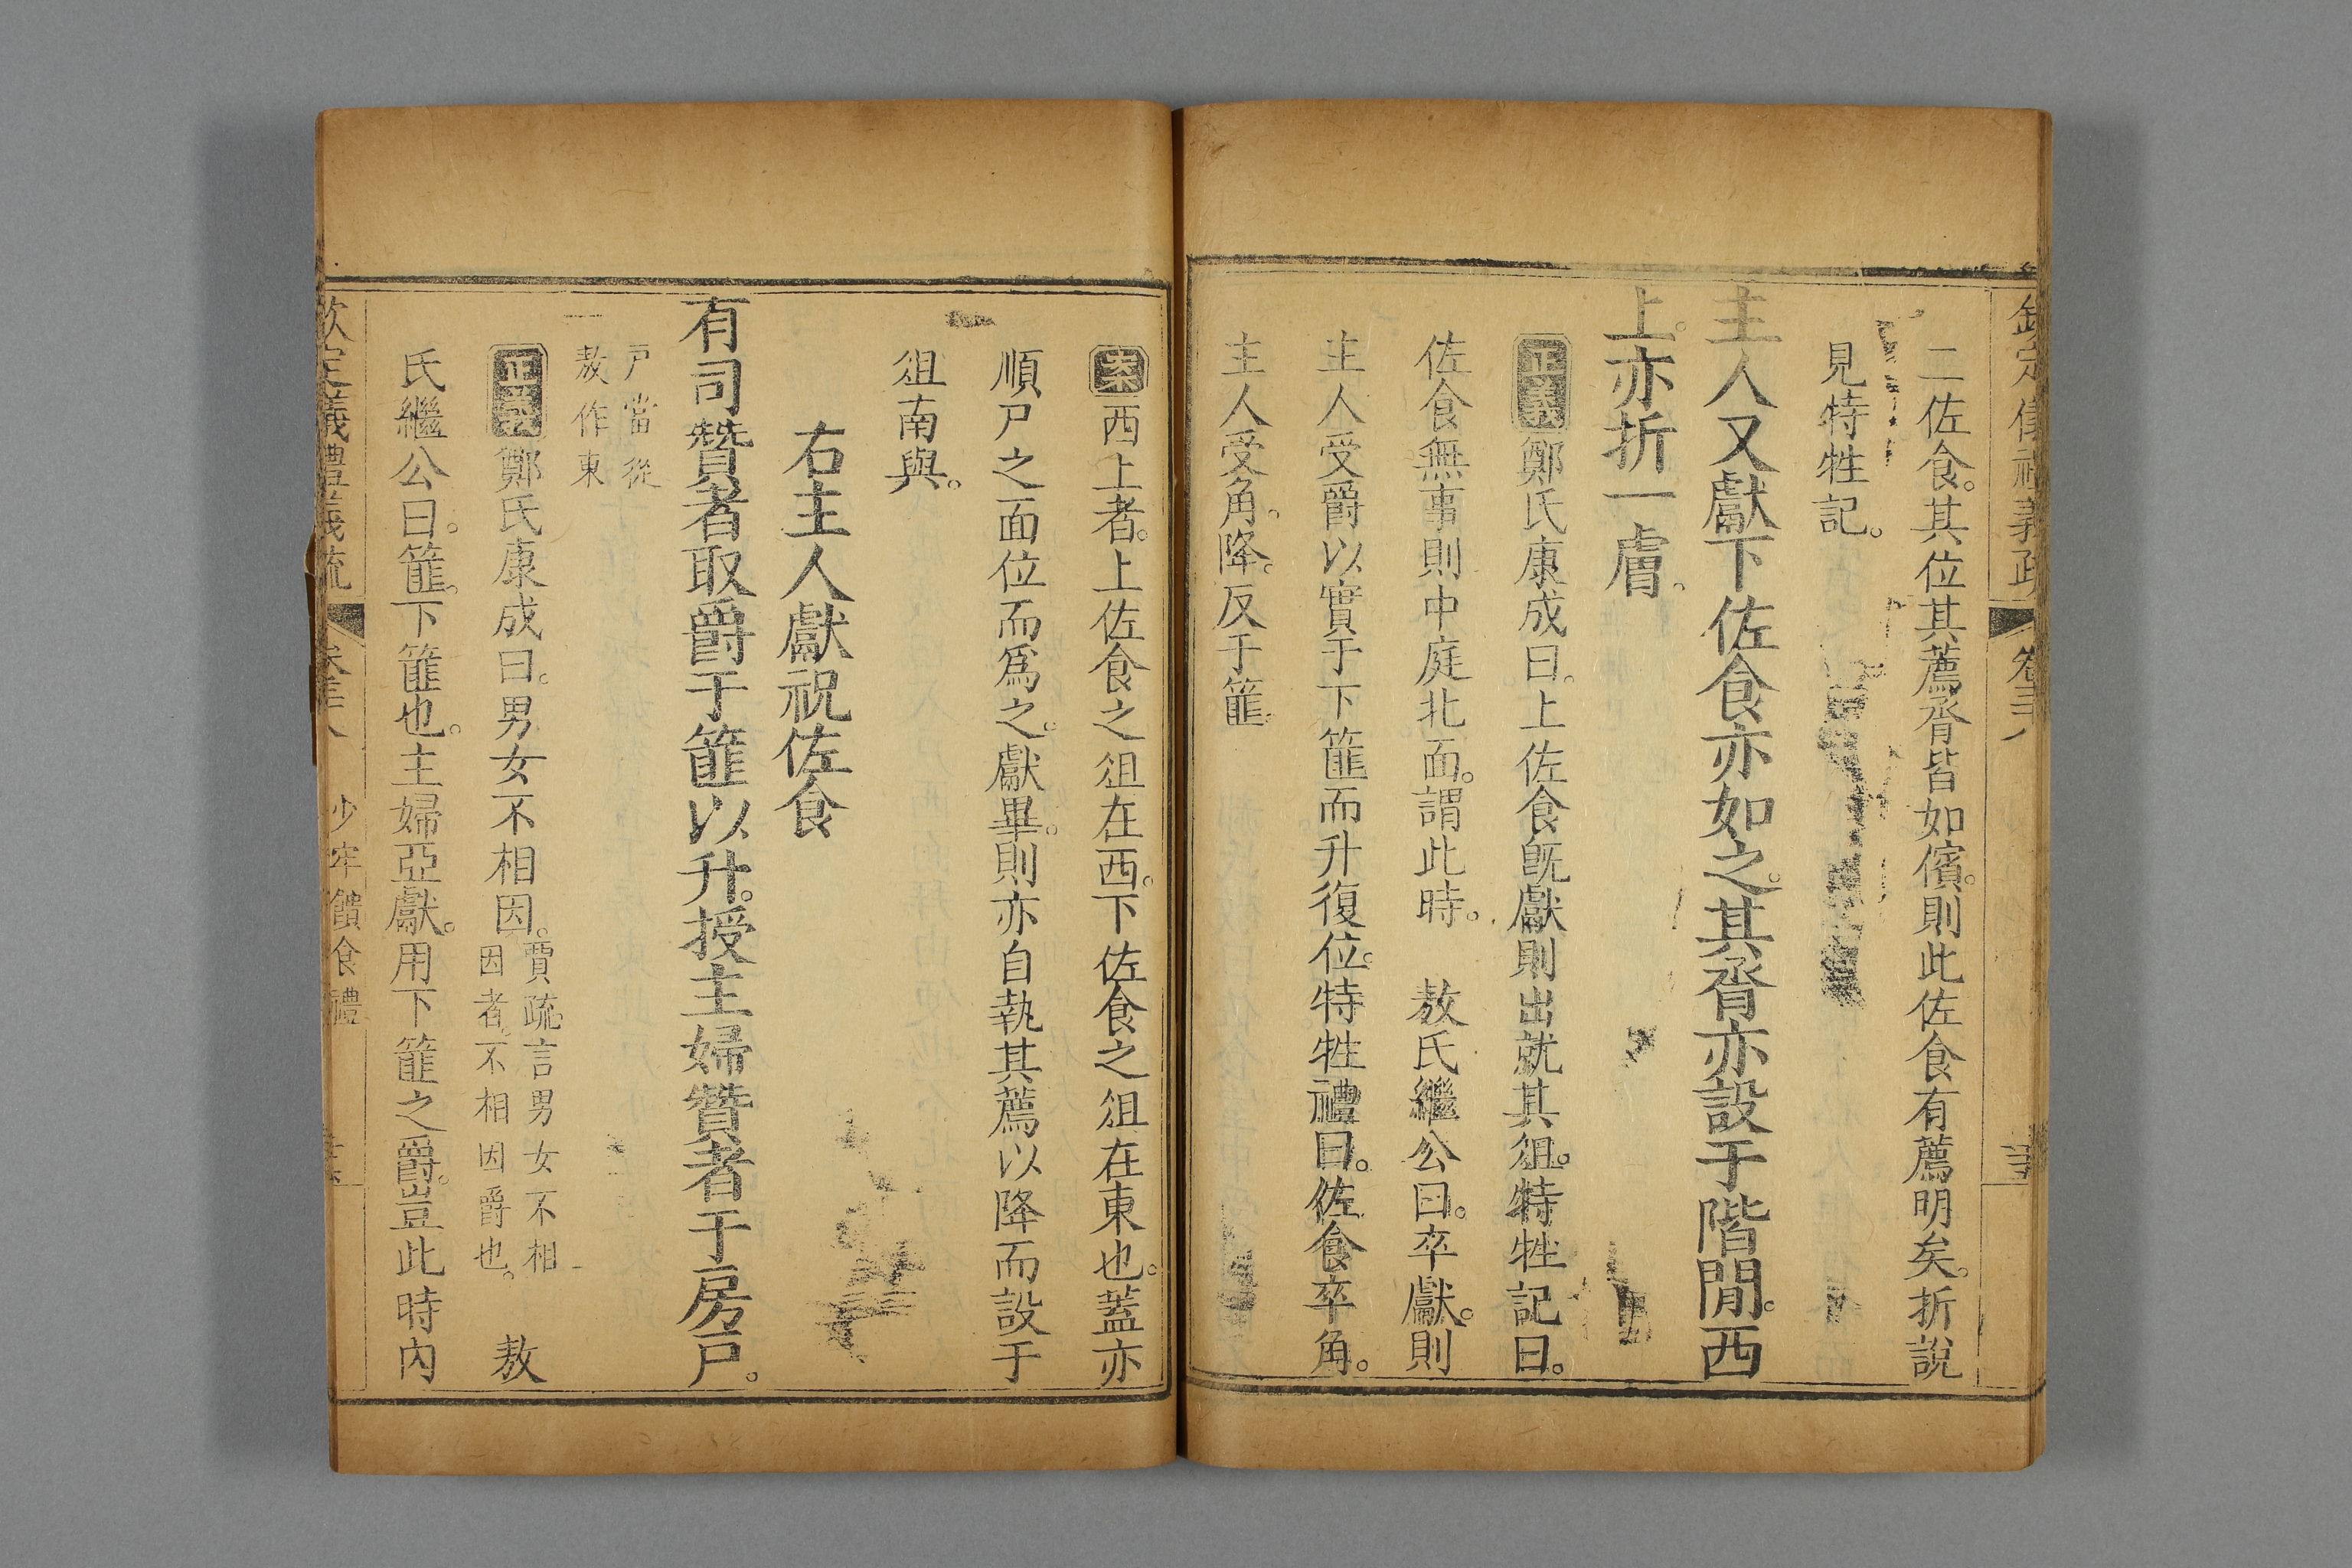 欽定儀禮義疏 卷三十八
二佐食。其位其薦脀皆如儐。則此佐食有薦明矣。折說
見特牲記。
主人又獻下佐食亦如之。其脀亦設于階閒。西
上。亦折一膚。
正義鄭氏康成曰。上佐食旣獻則出就其俎。特牲記曰。
佐食無事則中庭北面。謂此時。 敖氏繼公曰。卒獻。則
主人受爵以實于下篚而升復位。特牲禮曰。佐食卒角。
主人受角。降。反于篚。
案西上者。上佐食之俎在西。下佐食之俎在東也。蓋亦
順尸之面位而爲之。獻畢。則亦自執其薦以降而設于
俎南與。
右主人獻祝佐食
有司贊者取爵于篚以升。授主婦贊者于房戶。
戶當從
敖作東
正義鄭氏康成曰。男女不相因。賈疏言男女不相
因者。不相因爵也。 敖
氏繼公曰。篚。下篚也。主婦亞獻。用下篚之爵。豈此時內
欽定儀禮義疏 卷三十八 少牢饋食禮